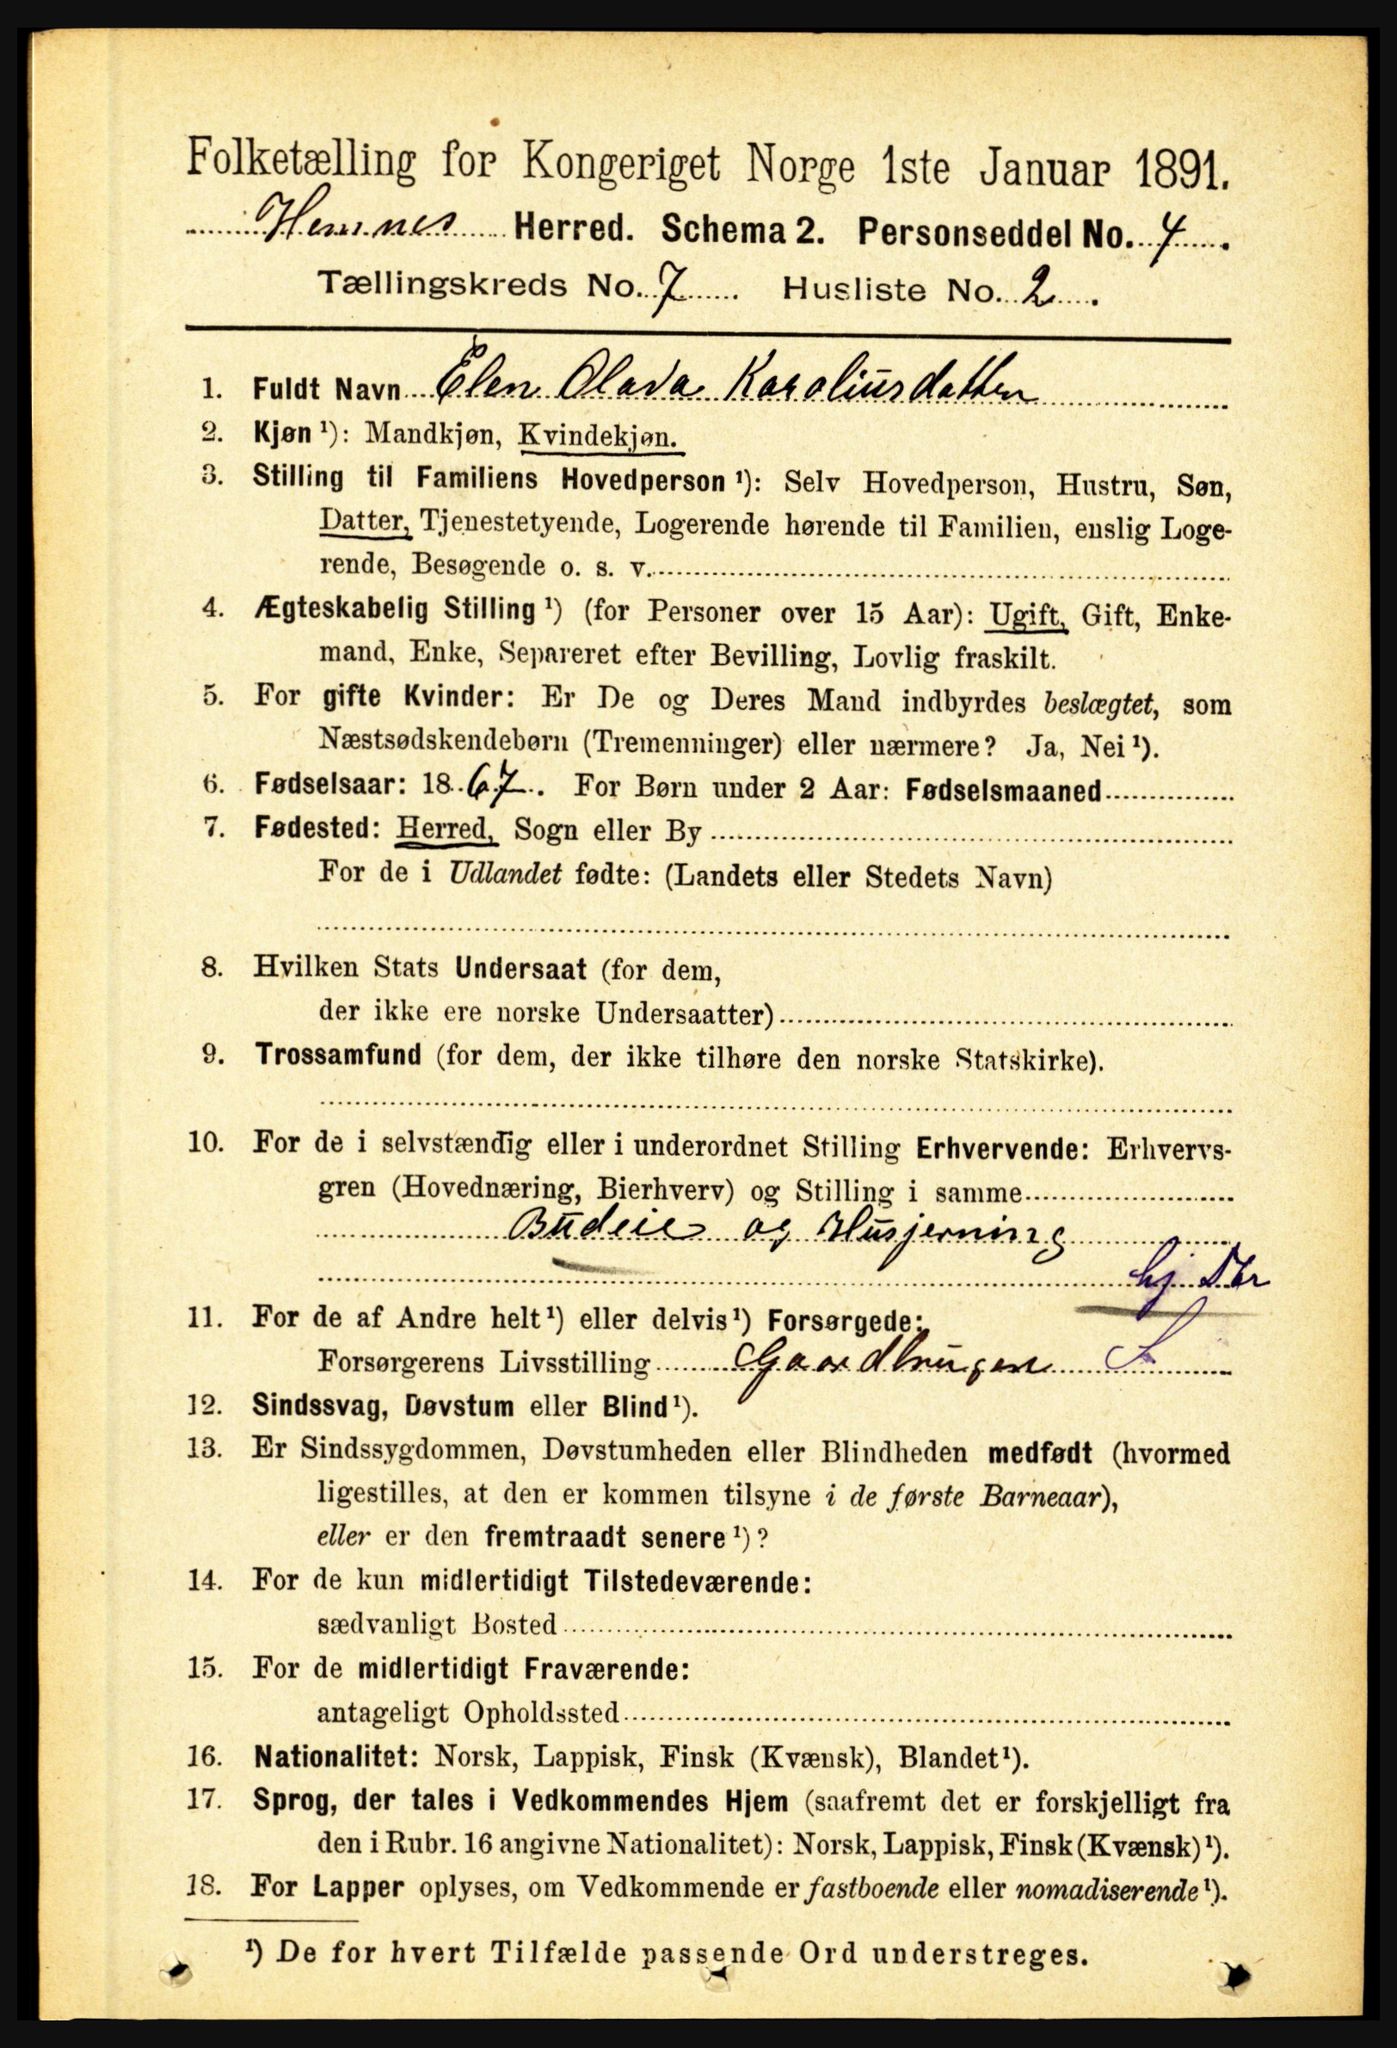 Folketælling for Kongeriget Norge 1ste Januar 1891.
Hemnes Herred. Schema 2. Personseddel No. 4
Tællingskreds No. 7 Husliste No. 2
1. Fuldt Navn Elen Olava Karoliusdatter
2. Kjøn ¹): Mandkjøn, Kvindekjøn.
3. Stilling til Familiens Hovedperson ¹): Selv Hovedperson, Hustru, Søn,
Datter, Tjenestetyende, Logerende hørende til Familien, enslig Loge-
rende, Besøgende o. s. v.
4. Ægteskabelig Stilling ¹) (for Personer over 15 Aar): Ugift, Gift, Enke-
mand, Enke, Separeret efter Bevilling, Lovlig fraskilt.
5. For gifte Kvinder: Er De og Deres Mand indbyrdes beslægtet, som
Næstsødskendebørn (Tremenninger) eller nærmere? Ja, Nei ¹).
6. Fødselsaar: 1867. For Børn under 2 Aar: Fødselsmaaned
7. Fødested: Herred, Sogn eller By
For de i Udlandet fødte: (Landets eller Stedets Navn)
8. Hvilken Stats Undersaat (for dem,
der ikke ere norske Undersaatter)
9. Trossamfund (for dem, der ikke tilhøre den norske Statskirke).
10. For de i selvstændig eller i underordnet Stilling Erhvervende: Erhvervs-
gren (Hovednæring, Bierhverv) og Stilling i samme
Budeie og Husjerning
hj Dtr
11. For de af Andre helt ¹) eller delvis ¹) Forsørgede:
Forsørgerens Livsstilling Gaardbruger S
12. Sindssvag, Døvstum eller Blind ¹).
13. Er Sindssygdommen, Døvstumheden eller Blindheden medfødt (hvormed
ligestilles, at den er kommen tilsyne i de første Barneaar),
eller er den fremtraadt senere ¹)?
14. For de kun midlertidigt Tilstedeværende:
sædvanligt Bosted
15. For de midlertidigt Fraværende:
antageligt Opholdssted
16. Nationalitet: Norsk, Lappisk, Finsk (Kvænsk), Blandet ¹).
17. Sprog, der tales i Vedkommendes Hjem (saafremt det er forskjelligt fra
den i Rubr. 16 angivne Nationalitet): Norsk, Lappisk, Finsk (Kvænsk) ¹).
18. For Lapper oplyses, om Vedkommende er fastboende eller nomadiserende ¹).
¹) De for hvert Tilfælde passende Ord understreges.